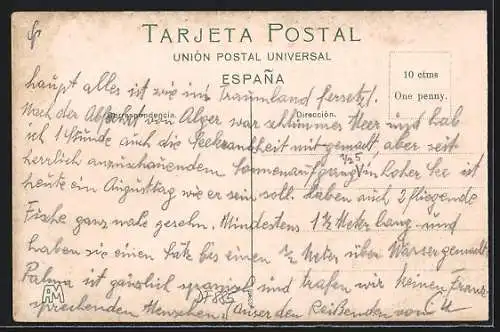 TARJETA POSTAL
UNIÓN POSTAL UNIVERSAL
ESPAÑA
10 ctms
One penny.
Correspondencia.
Dirección.
haupt alles ist wie ins Traumland fersetzt.
Nach der Abfahrt von Alger war schlimmes Meer und hab
ich 1 Stunde auch die Seekrankheit mit gemacht aber seit
herrlich anzuschauendem Sonnenaufgang 1/2 5 in hoher See ist
heute ein Augusttag wie er sein soll. Haben auch 2 fliegende
Fische ganz nahe gesehn. Mindestens 1 1/2 Meter lang und
haben sie einen Satz bis einen 1/2 Meter über Wasser gemacht
Palma ist gänzlich spanisch und trafen wir keinen Franz.
sprechenden Menschen. (auser den Reißenden vom
AM